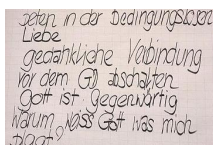 beten in der Bedingungslosen
Liebe
gedankliche Verbindung
vor dem abschalten
Gott ist Gegenwärtig
warum, weiss Gott was mich